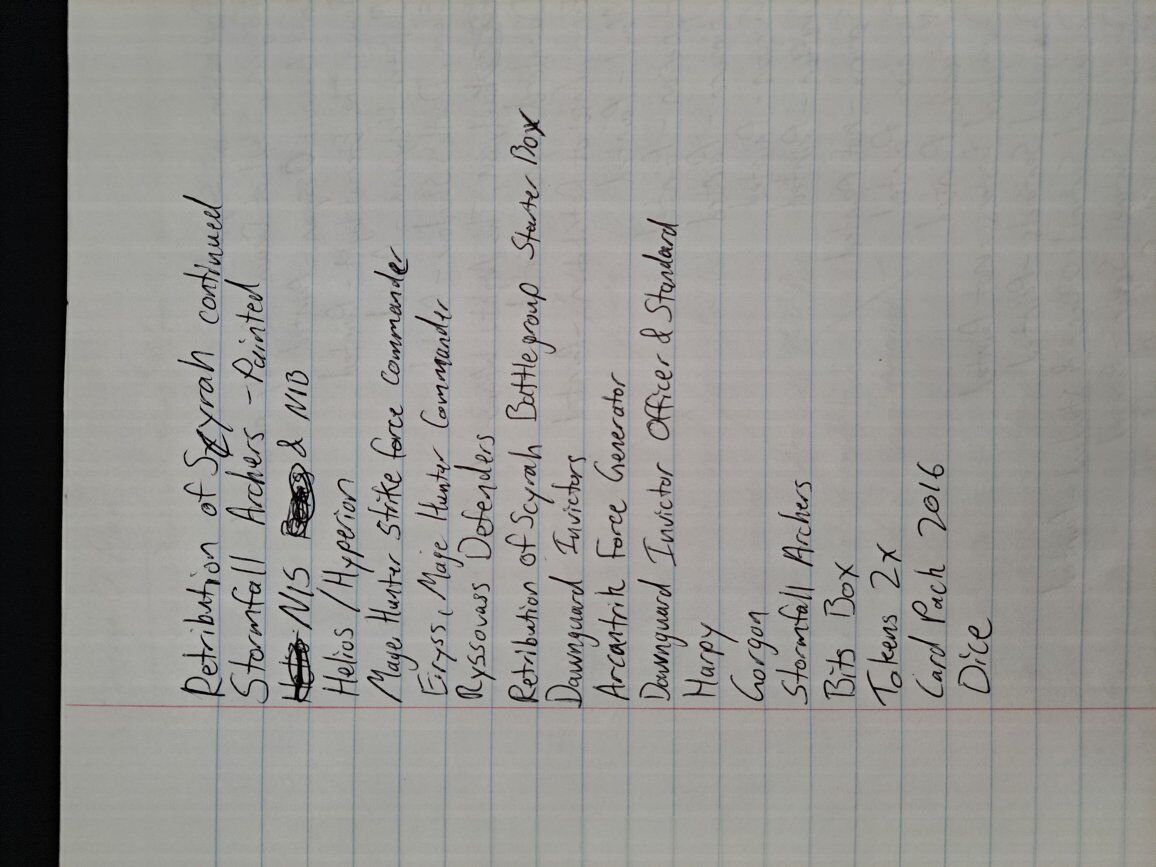 Retribution of Scyrah continued
Stormfall Archers - Painted
NIS & NIB
Helios / Hyperion
Mage Hunter Strike force commander
Eiryss, Mage Hunter Commander
Ryssovass Defenders
Retribution of Scyrah Battlegroup Starter Box
Dawnguard Invictors
Arcantrik Force Generator
Dawnguard Invictor Officer & Standard
Harpy
Gorgon
Stormfall Archers
Bits Box
Tokens 2x
Card Pack 2016
Dice